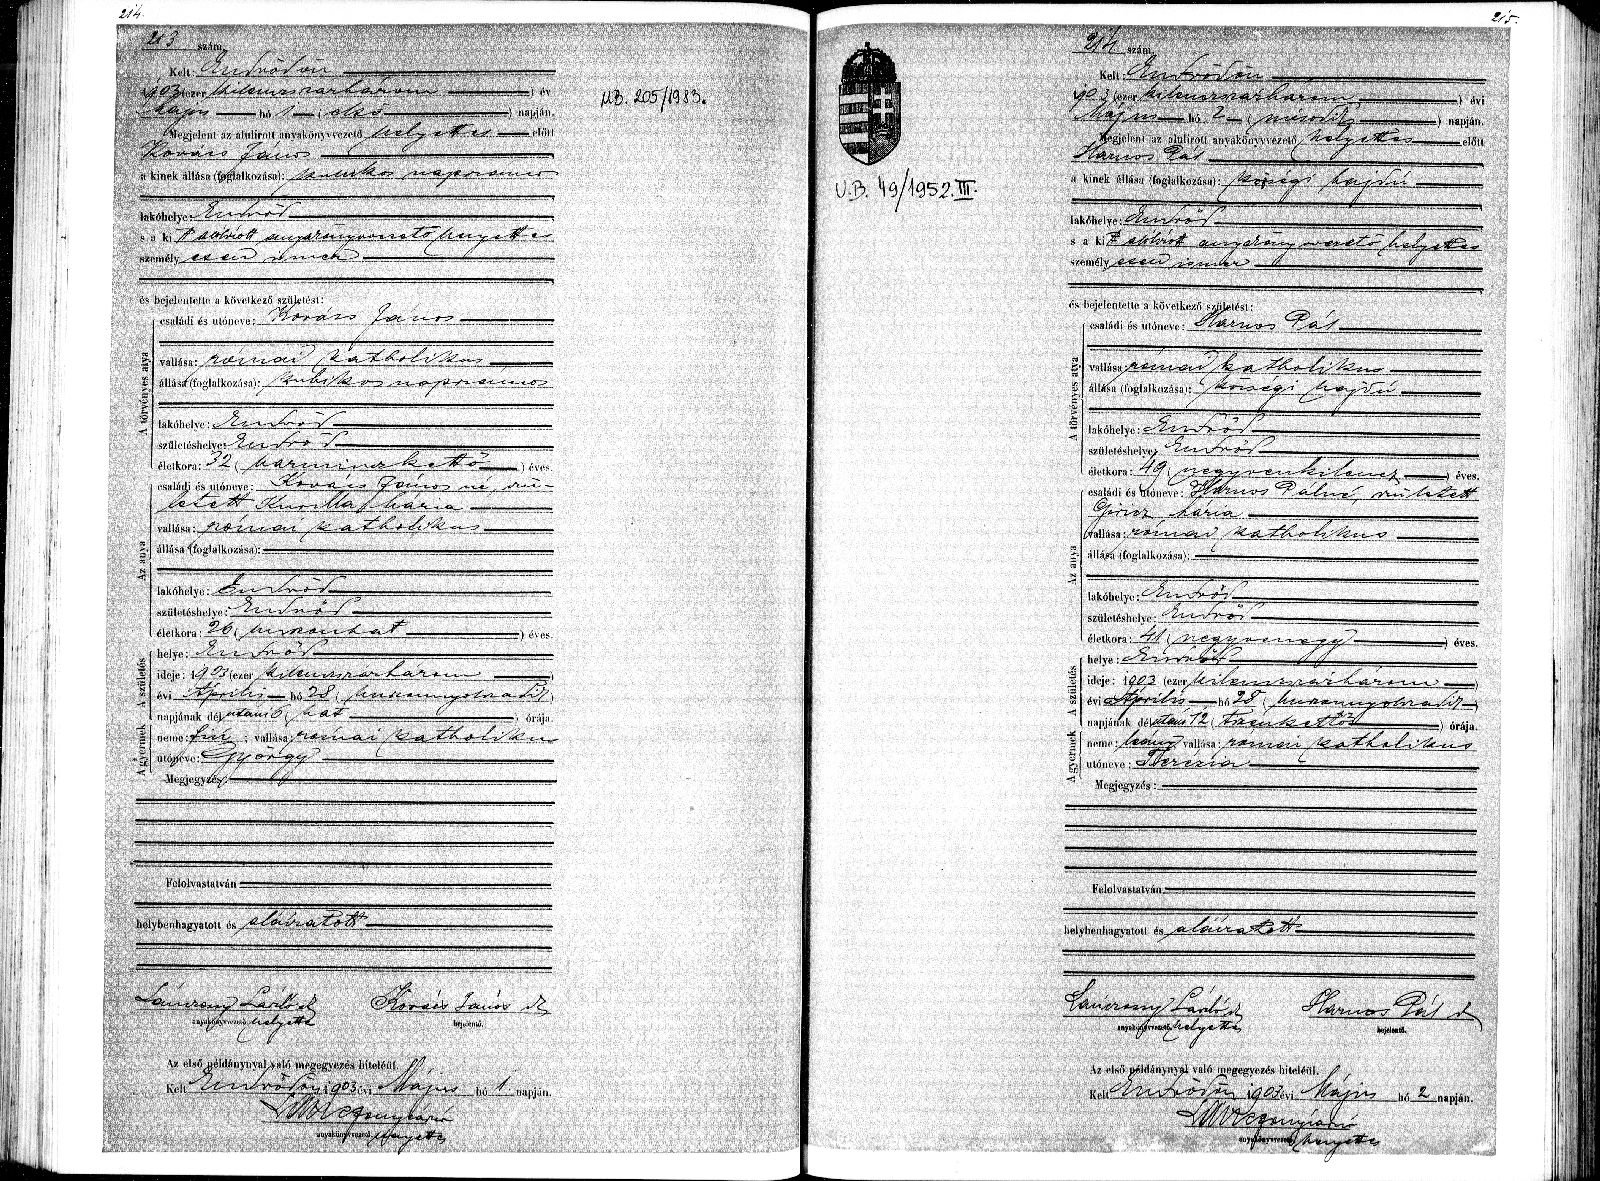 214.
213 szám.
Kelt: Endrődön
1903 (ezer kilenczszázhárom) év
Május hó 1 (első) napján.
Megjelent az alulirott anyakönyvvezető helyettes előtt
Kovács János
a kinek állása (foglalkozása): kubikos napszámos
lakóhelye: Endrőd
s a kit alólirott anyakönyvvezető helyettes
személyesen ismer
és bejelentette a következő születést:
A törvényes atya
családi és utóneve: Kovács János
vallása: római katholikus
állása (foglalkozása): kubikos napszámos
lakóhelye: Endrőd
születéshelye: Endrőd
életkora: 32 (harminczkettő) éves.
Az anya
családi és utóneve: Kovács Jánosné, szü-
letett Mária
vallása: római katholikus
állása (foglalkozása):
lakóhelye: Endrőd
születéshelye: Endrőd
életkora: 26 (huszonhat) éves.
A születés
helye: Endrőd
ideje: 1903 (ezer kilenczszázhárom)
évi Április hó 28 (huszonnyolczadik)
napjának dél utáni 6 (hat) órája.
A gyermek
neme: fiu; vallása: római katholikus
utóneve: György
Megjegyzés:
Felolvastatván
helybenhagyatott és aláiratott
László
Kovács János
anyakönyvvezető helyettes
bejelentő.
Az első példánynyal való megegyezés hiteléül.
Kelt Endrődön, 1903 évi Május hó 1 napján.
anyakönyvvezető helyettes
MB. 205/1983.
215.
U.B. 49/1952. III.
214 szám.
Kelt: Endrődön
1903 (ezer kilenczszázhárom) évi
Május hó 2 (második) napján.
Megjelent az alulirott anyakönyvvezető helyettes előtt
Harnos Pál
a kinek állása (foglalkozása): községi hajdú
lakóhelye: Endrőd
s a kit alólirott anyakönyvvezető helyettes
személyesen ismer
és bejelentette a következő születést:
A törvényes atya
családi és utóneve: Harnos Pál
vallása: római katholikus
állása (foglalkozása): községi hajdú
lakóhelye: Endrőd
születéshelye: Endrőd
életkora: 49 (negyvenkilencz) éves.
Az anya
családi és utóneve: Harnos Pálné, született
Mária
vallása: római katholikus
állása (foglalkozása):
lakóhelye: Endrőd
születéshelye: Endrőd
életkora: 41 (negyvenegy) éves.
A születés
helye: Endrőd
ideje: 1903 (ezer kilenczszázhárom)
évi Április hó 28 (huszonnyolczadik)
napjának dél utáni 12 (tizenkettő) órája.
A gyermek
neme: leány vallása: római katholikus
utóneve: Terézia
Megjegyzés:
Felolvastatván
helybenhagyatott és aláiratott
László
Harnos Pál
anyakönyvvezető helyettes
bejelentő.
Az első példánynyal való megegyezés hiteléül.
Kelt Endrődön 1903 évi Május hó 2 napján.
anyakönyvvezető helyettes